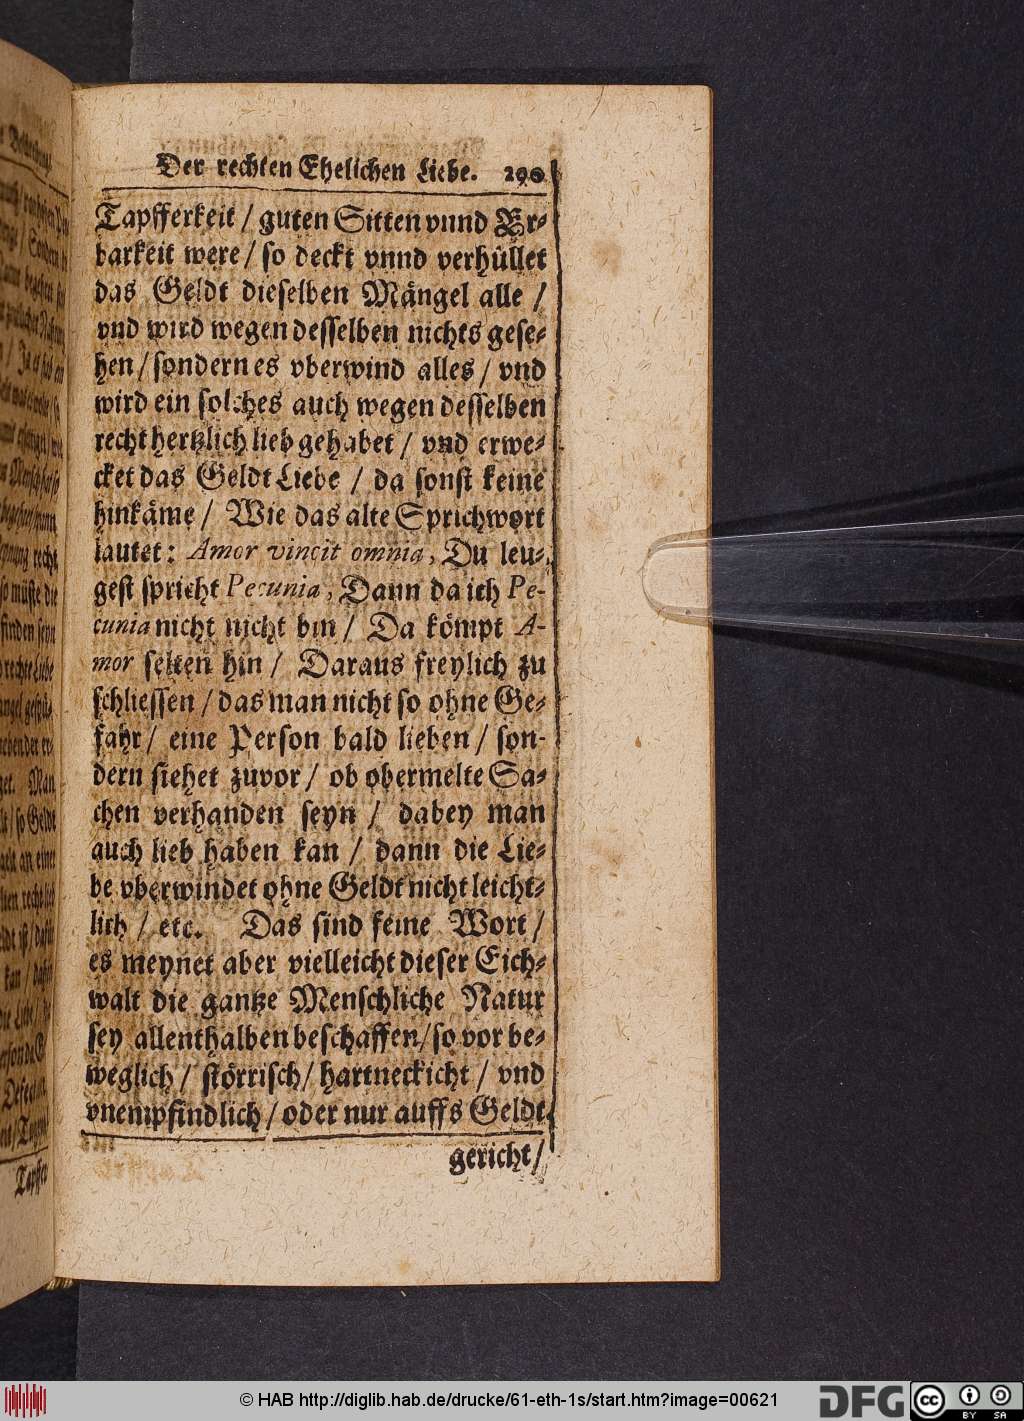 Der rechten Ehelichen Liebe. 290
Tapfferkeit / guten Sitten vnnd Er-
barkeit were / so deckt vnnd verhüllet
das Geldt dieselben Mängel alle /
vnd wird wegen desselben nichts gese-
hen / sondern es vberwind alles / vnd
wird ein solches auch wegen desselben
recht hertzlich lieb gehabet / vnd erwe-
cket das Geldt Liebe / da sonst keine
hinkäme / Wie das alte Sprichwort
lautet: Amor vincit omnia, Du leu-
gest spricht Pecunia, Dann da ich Pe-
cunia nicht nicht bin / Da kömpt A-
mor selten hin / Daraus freylich zu
schliessen / das man nicht so ohne Ge-
fahr / eine Person bald lieben / son-
dern siehet zuvor / ob obermelte Sa-
chen verhanden seyn / dabey man
auch lieb haben kan / dann die Lie-
be vberwindet ohne Geldt nicht leicht-
lich / etc. Das sind feine Wort /
es meynet aber vielleicht dieser Eich-
walt die gantze Menschliche Natur
sey allenthalben beschaffen / so vor be-
weglich / störrisch / hartneckicht / vnd
vnempfindlich / oder nur auffs Geldt
gericht /
© HAB http://diglib.hab.de/drucke/61-eth-1s/start.htm?image=00621
DFG
cc BY SA